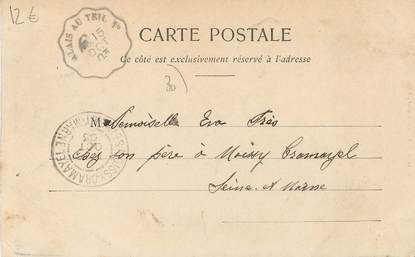 12 €
ALAIS AU TEIL
15
OCT
CARTE POSTALE
Ce côté est exclusivement réservé à l'adresse
30
Mademoiselle Eva Près
chez son père à Moissy Cramayel
Seine-et-Marne
MOISSY-CRAMAYEL